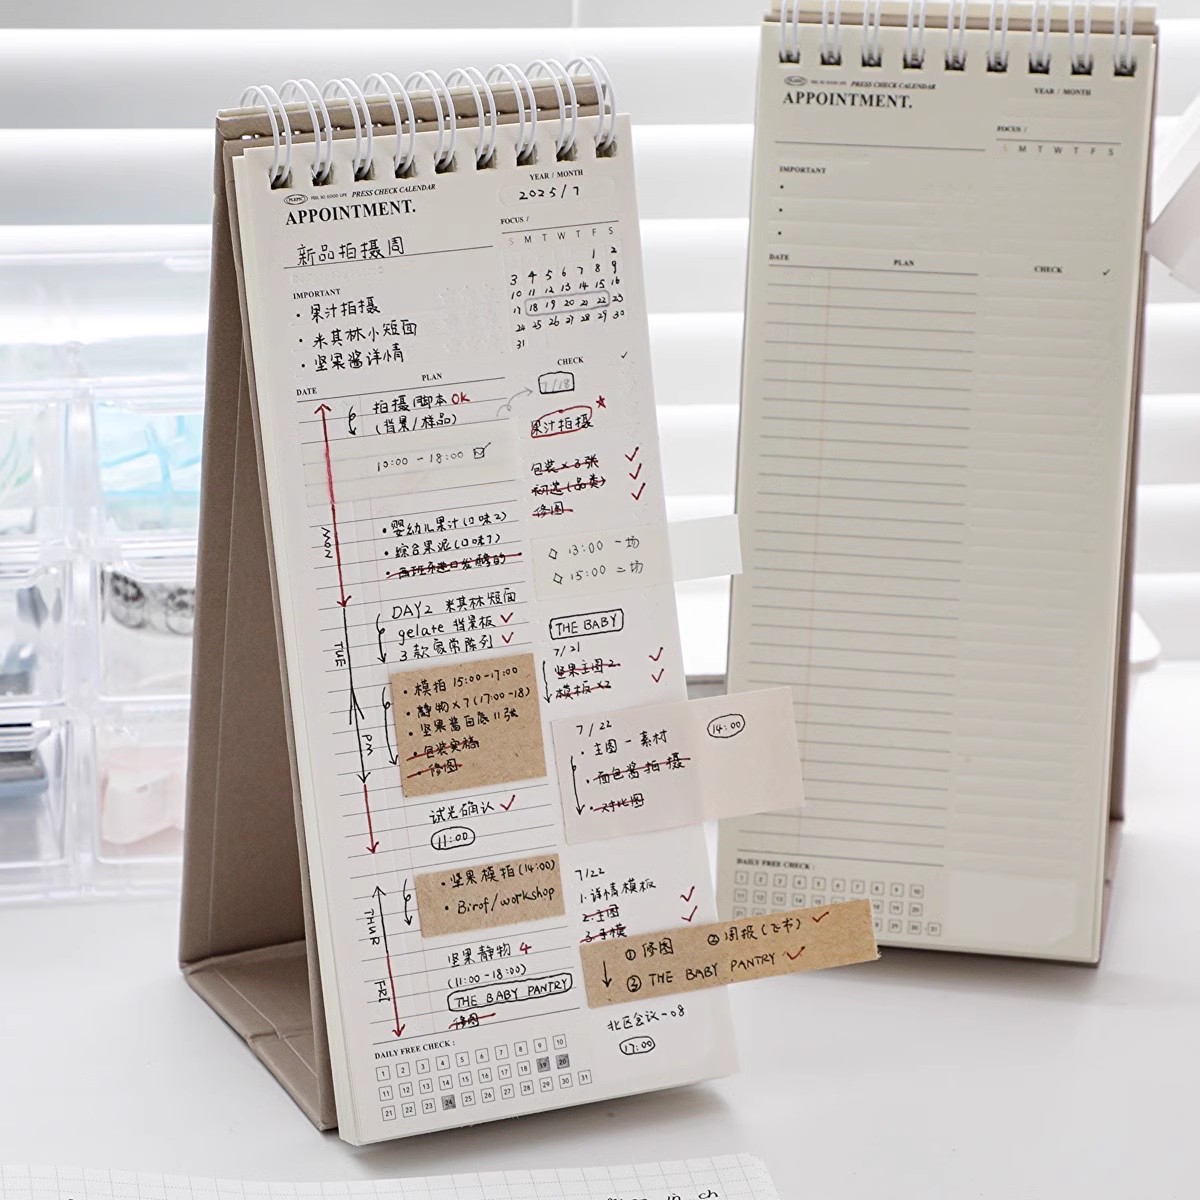 PRESS CHECK CALENDAR
APPOINTMENT.
YEAR / MONTH
2025/7
新品拍摄周
FOCUS /
S M T W T F S
1 2
3 4 5 6 7 8 9
10 11 12 13 14 15 16
17 18 19 20 21 22 23
24 25 26 27 28 29 30
31
IMPORTANT
· 果汁拍摄
· 米其林小短面
· 坚果酱详情
DATE
PLAN
CHECK ✓
拍摄脚本OK
(背景/样品)
10:00 - 18:00
MON
· 婴幼儿果汁(口味2)
· 综合果泥(口味7)
DAY2 米其林短面
gelate 背景板 ✓
3款家常陈列 ✓
TUE
PM
· 模拍 15:00-17:00
· 静物×7(17:00-18)
· 坚果酱白底11张
· 包装实稿
· 修图
试光确认 ✓
11:00
· 坚果模拍(14:00)
· Birof/workshop
THUR
FRI
坚果静物 4
(11:00-18:00)
THE BABY PANTRY
修图
7/18
果汁拍摄
包装×3张 ✓
初选(品类) ✓
修图 ✓
◇ 13:00 一场
◇ 15:00 二场
THE BABY
7/21
坚果主图2 ✓
模板×2 ✓
7/22
· 主图-素材
· 面包酱拍摄
· 对比图
14:00
7/22
1.详情模板
2.主图 ✓
3.手模 ✓
① 修图 ② 周报(飞书) ✓
③ THE BABY PANTRY ✓
北区会议-08
17:00
DAILY FREE CHECK :
1 2 3 4 5 6 7 8 9 10
11 12 13 14 15 16 17 18 19 20
21 22 23 24 25 26 27 28 29 30 31
PRESS CHECK CALENDAR
APPOINTMENT.
YEAR / MONTH
FOCUS /
S M T W T F S
IMPORTANT
DATE
PLAN
CHECK ✓
DAILY FREE CHECK :
1 2 3 4 5 6 7 8 9 10